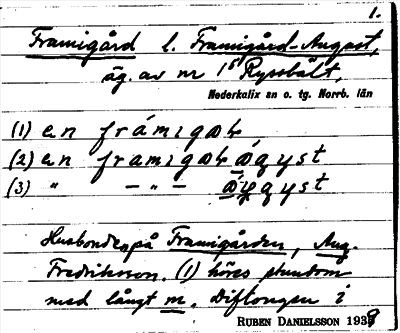 1.
Framigård l. Framigård-August,
äg. av nr 1⁵ Ryssbält,
Nederkalix sn o. tg. Norrb. län
(1) en framıgaɷ
(2) en framıgaɷ ágɥst
(3) " – " –
Husbonden på Framigården, Aug.
Fredriksson. (1) höres stundom
med långt m. Diftongen i
RUBEN DANIELSSON 1938